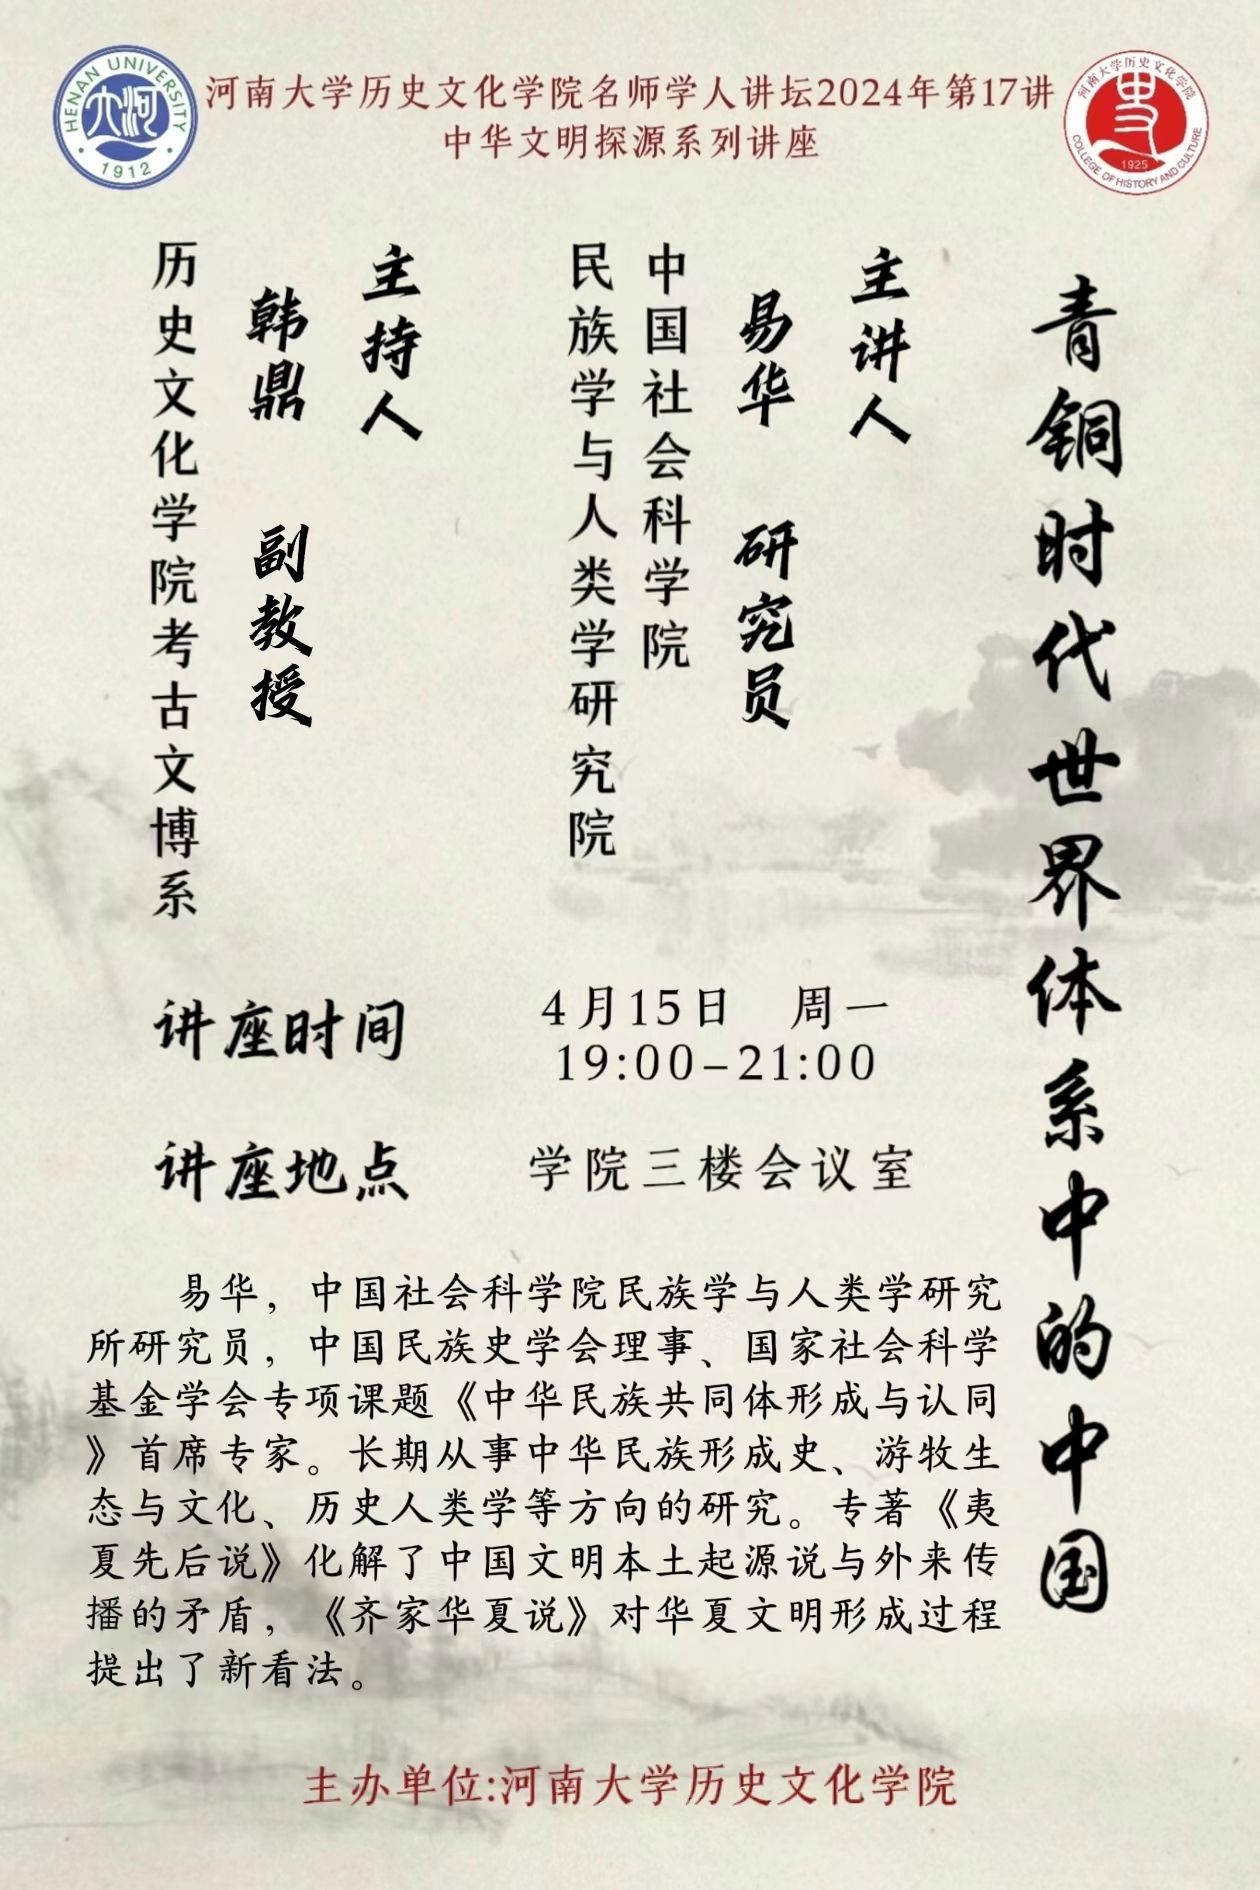 河南大学历史文化学院名师学人讲坛2024年第17讲
中华文明探源系列讲座
HENAN UNIVERSITY
大河
1912
河南大学历史文化学院
史
1925
COLLEGE OF HISTORY AND CULTURE
青铜时代世界体系中的中国
主讲人
易华 研究员
中国社会科学院
民族学与人类学研究院
主持人
韩鼎 副教授
历史文化学院考古文博系
讲座时间
4月15日 周一
19:00-21:00
讲座地点
学院三楼会议室
易华，中国社会科学院民族学与人类学研究
所研究员，中国民族史学会理事、国家社会科学
基金学会专项课题《中华民族共同体形成与认同
》首席专家。长期从事中华民族形成史、游牧生
态与文化、历史人类学等方向的研究。专著《夷
夏先后说》化解了中国文明本土起源说与外来传
播的矛盾，《齐家华夏说》对华夏文明形成过程
提出了新看法。
主办单位:河南大学历史文化学院